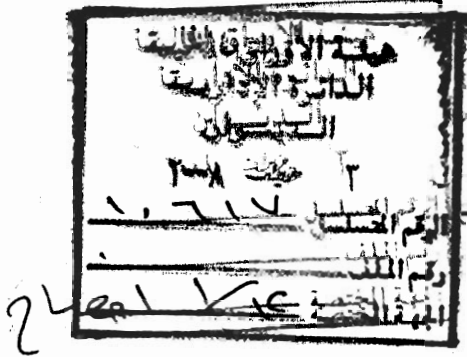 هيئة الأوراق المالية
الدائرة الإدارية
الديوان
٣ ٢٠٠٨
الرقم المتسلسل ١٠٦١٧
رقم الملف
الجهة المختصة